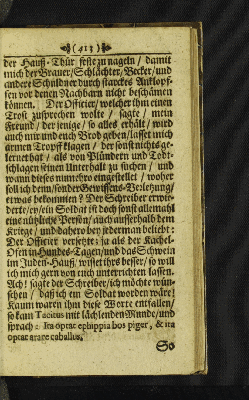 (413)
der Hauß-Thür feste zu nageln / damit
mich der Brauer/Schlächter/Becker/und
andere Schuldner durch starckes Anklopf-
fen vor denen Nachbarn nicht beschämen
können. Der Officier/welcher ihm einen
Trost zusprechen wolte / sagte / mein
Freund / der jenige / so alles erhält / wird
auch mir und euch Brod geben/lasset mich
armen Tropff klagen / der sonst nichts ge-
lernet hat / als von Plündern und Todt-
schlagen seinen Unterhalt zu suchen / und
wann dieses nunmehro eingestellet / woher
soll ich denn/sonder Gewissens-Verletzung/
etwas bekommen? Der Schreiber erwie-
derte/ey/ein Soldat ist doch sonst allemahl
eine nützliche Person/auch ausserhalb dem
Kriege/ und dahero bey jederman beliebt:
Der Officier versetzte: ja als der Kachel-
Ofen in Hundes-Tagen/und das Schwein
im Juden-Hauß/ wisset ihrs besser/ so will
ich mich gern von euch unterrichten lassen.
Ach! sagte der Schreiber/ich möchte wün-
schen / daß ich ein Soldat worden wäre!
Kaum waren ihm diese Worte entfallen/
so kam Tacitus mit lächlenden Munde/und
sprach: Ita optat ephippia bos piger, & ita
optat arare caballus,
So